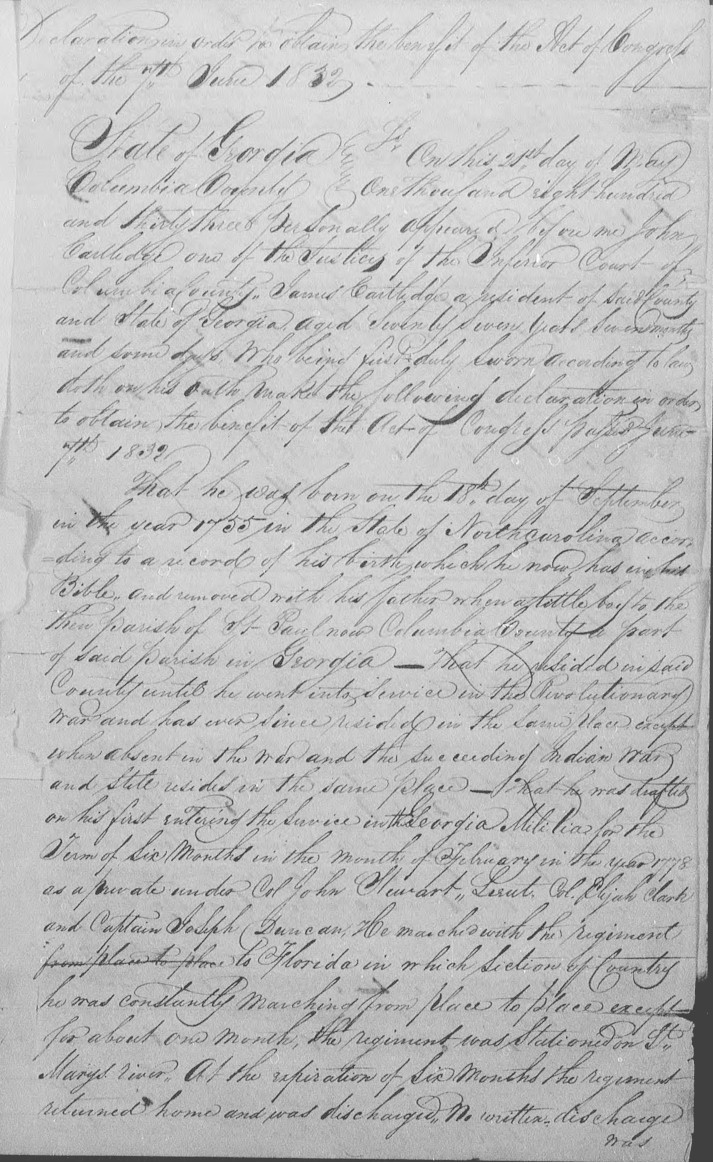 Declaration in order to obtain the benefit of the Act of Congress
of the 7th June 1832.
State of Georgia } Ss On this 21st day of May
Columbia County } One thousand eight hundred
and thirty three personally appeared before me John
Cartledge one of the Justices of the Inferior Court of
Columbia County, James Cartledge a resident of said County
and State of Georgia aged Seventy Seven years Seven months
and some days. Who being first duly sworn according to law
doth on his oath make the following declaration in order
to obtain the benefit of the Act of Congress passed June
7th 1832
That he was born on the 18th day of September
in the year 1755 in the State of Northcarolina accor-
=ding to a record of his birth which he now has in his
Bible, and removed with his father when a little boy to the
then parish of St Paul now Columbia County a part
of said parish in Georgia — That he resided in said
County until he went into Service in the Revolutionary
War and has ever since resided in the same place except
when absent in the war and the succeeding Indian War
and still resides in the same place — That he was drafted
on his first entering the service in the Georgia Militia for the
Term of Six Months in the month of February in the year 1778
as a private under Col John Stewart, Lieut. Col. Elijah Clark
and Captain Joseph Duncan, He marched with the regiment
from place to place to Florida in which Section of Country
he was constantly marching from place to place except
for about one month, the regiment was Stationed on St.
Marys river. At the expiration of Six Months the regiment
returned home and was discharged, No written discharge
was